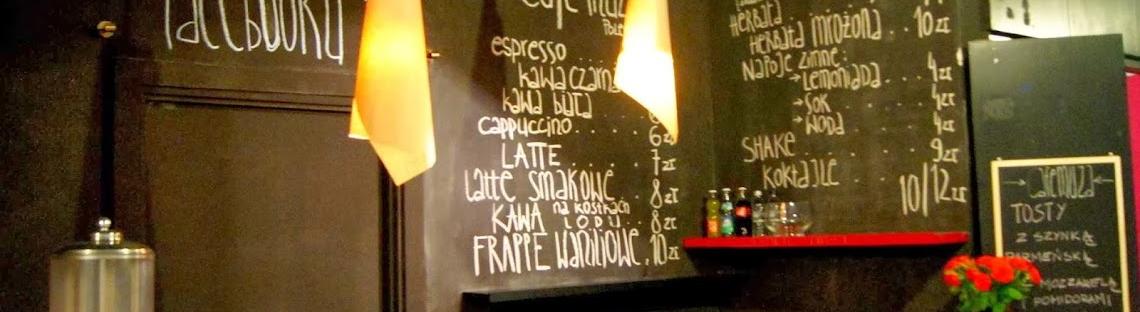 facebooku
espresso
kawa czarna
kawa biała
cappuccino . . . . . 6 zł
LATTE . . . . . 7 zł
latte smakowe . . 8 zł
KAWA na kostkach LODU . . 8 zł
FRAPPE waniliowe . 10 zł
HERBATA
HERBATA mrożona . . 10 zł
NAPOJE ZIMNE:
→ Lemoniada . . . 4 zł
→ SOK . . . . . 4 zł
→ WODA . . . . 4 zł
SHAKE . . . . . 9 zł
koktajle . . . 10/12 zł
→ cafemuza ←
TOSTY
Z SZYNKĄ
PARMEŃSKĄ
MOZZARELLĄ
POMIDORAMI